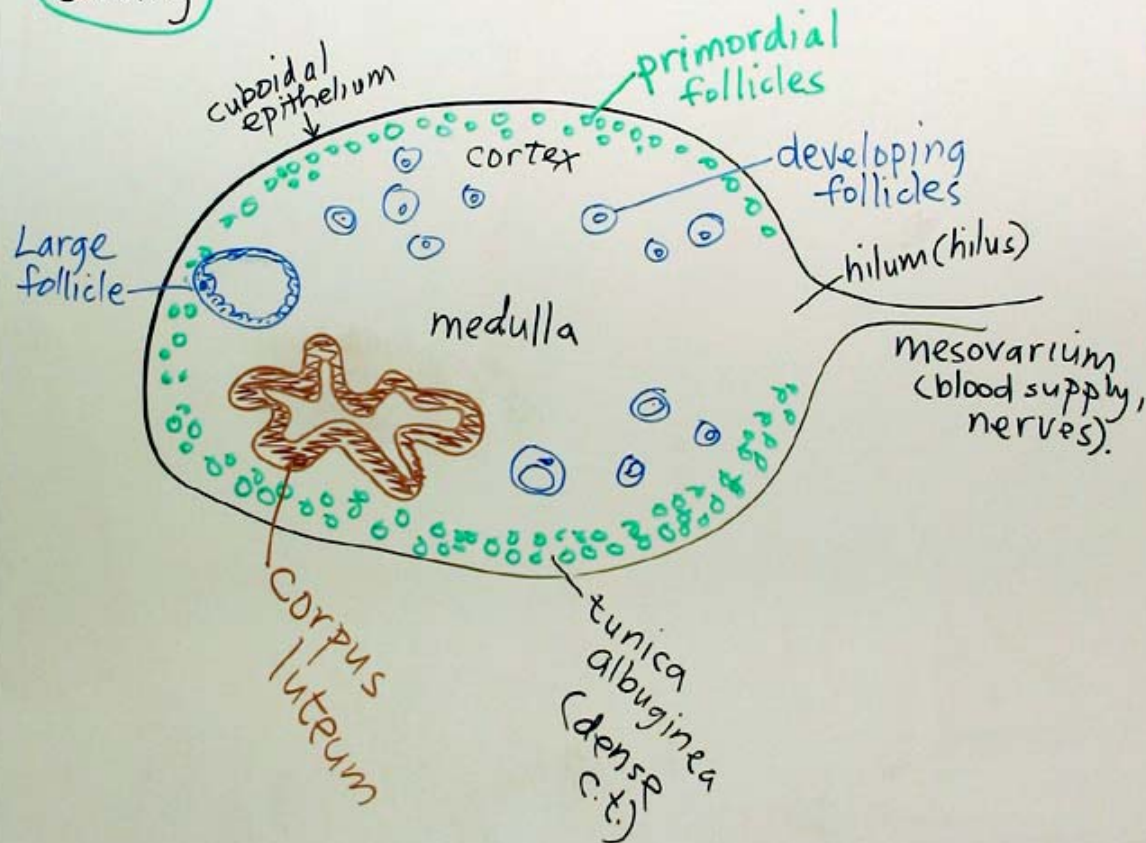 cuboidal
epithelium
primordial
follicles
cortex
developing
follicles
Large
follicle
hilum (hilus)
medulla
mesovarium
(blood supply,
nerves).
corpus
luteum
tunica
albuginea
(dense
c.t.)